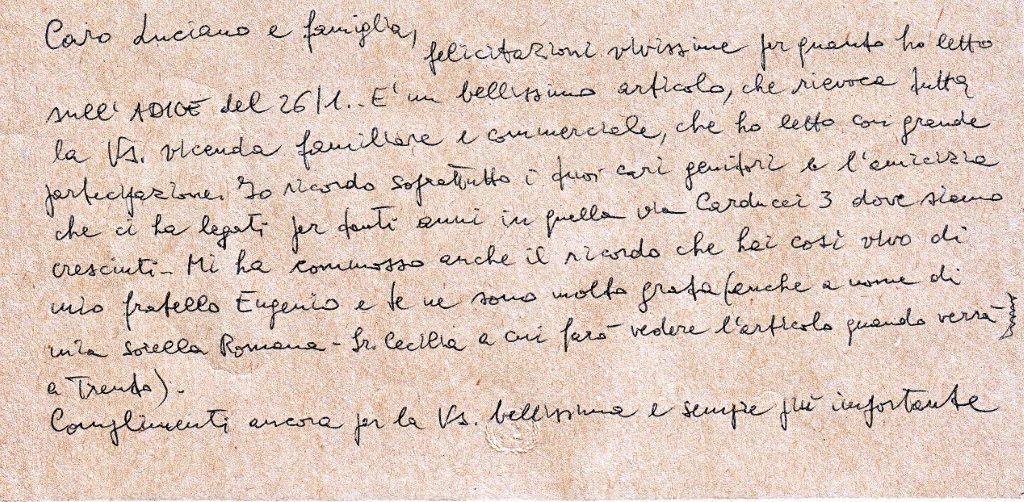 Caro Luciano e famiglia,
felicitazioni vivissime per quanto ho letto
sull'ADIGE del 26/1.. E' un bellissimo articolo, che rievoca tutta
la Vs. vicenda familiare e commerciale, che ho letto con grande
partecipazione. Io ricordo soprattutto i tuoi cari genitori e l'amicizia
che ci ha legati per tanti anni in quella via Carducci 3 dove siamo
cresciuti - Mi ha commosso anche il ricordo che hai così vivo di
mio fratello Eugenio e te ne sono molto grata (anche a nome di
mia sorella Romana - Sr. Cecilia a cui farò vedere l'articolo quando verrà
a Trento).
Complimenti ancora per la Vs. bellissima e sempre più importante